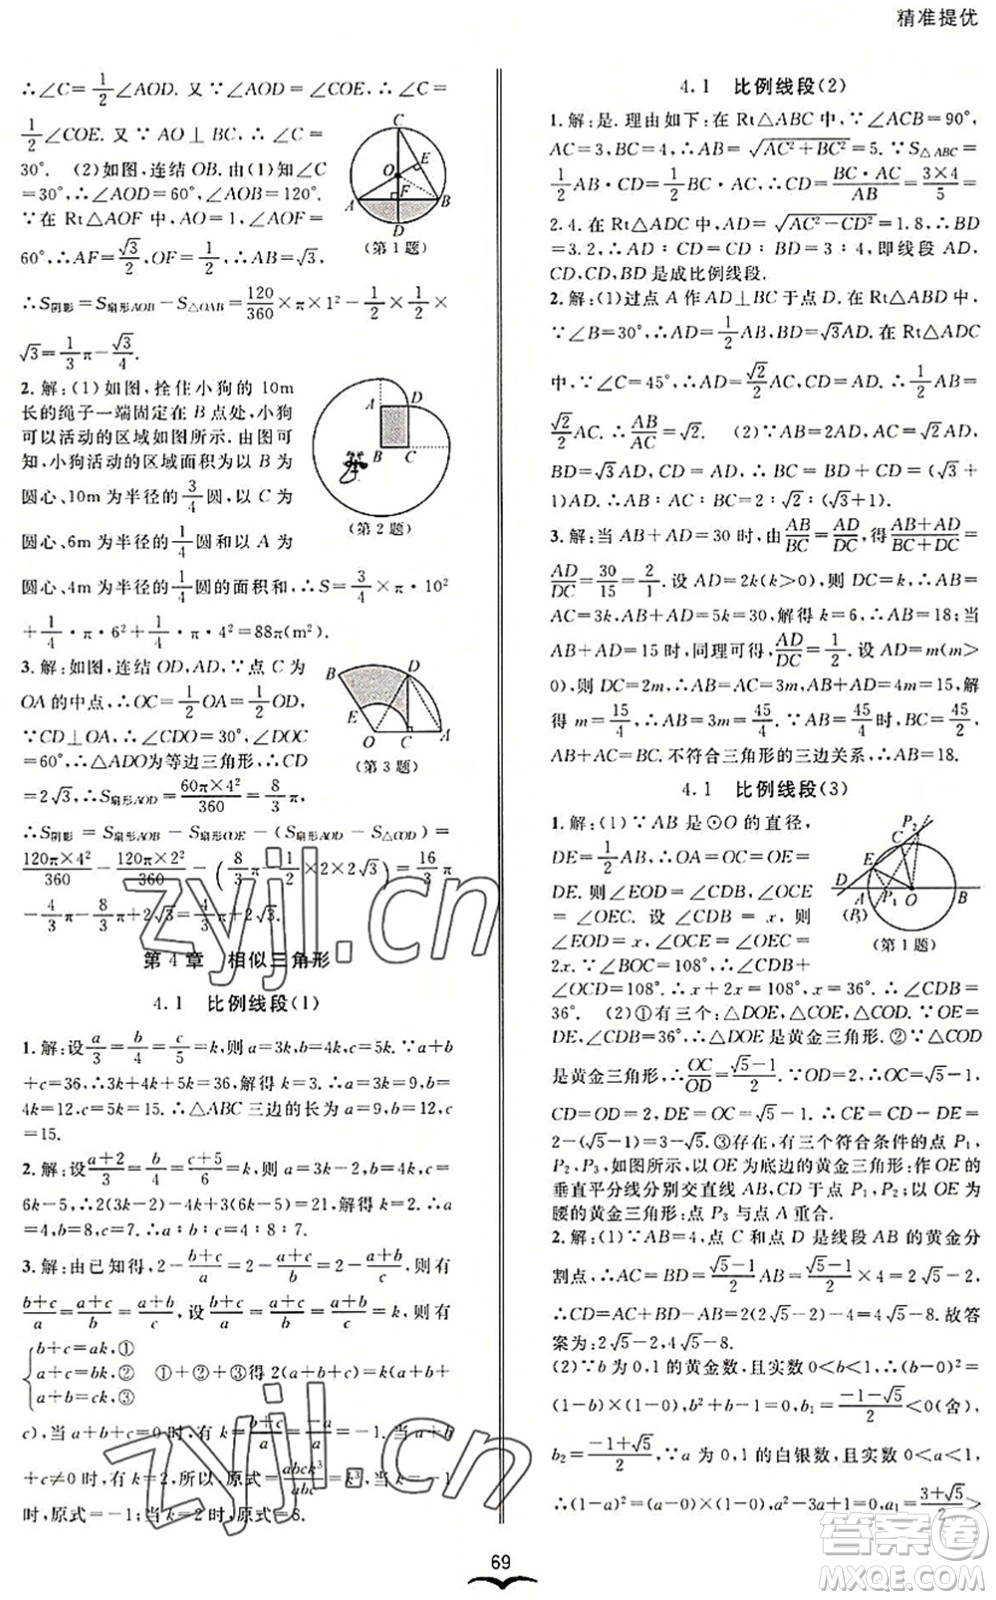 精准提优
∴∠C=1/2∠AOD. 又∵∠AOD=∠COE,∴∠C=
1/2∠COE. 又∵AO⊥BC,∴∠C=
30°. (2)如图,连结OB,由(1)知∠C
=30°,∴∠AOD=60°,∠AOB=120°.
∵在Rt△AOF中,AO=1,∠AOF=
60°,∴AF=√3/2,OF=1/2,∴AB=√3.
(第1题)
∴S阴影=S扇形AOB-S△OAB=120/360×π×1²-1/2×1/2×
√3=1/3π-√3/4.
2.解:(1)如图,拴住小狗的10m
长的绳子一端固定在B点处,小狗
可以活动的区域如图所示.由图可
知,小狗活动的区域面积为以B为
圆心、10m为半径的3/4圆,以C为
圆心、6m为半径的1/4圆和以A为
(第2题)
圆心、4m为半径的1/4圆的面积和,∴S=3/4×π·10²
+1/4·π·6²+1/4·π·4²=88π(m²).
3.解:如图,连结OD,AD,∵点C为
OA的中点,∴OC=1/2OA=1/2OD,
∵CD⊥OA,∴∠CDO=30°,∠DOC
=60°,∴△ADO为等边三角形,∴CD
(第3题)
=2√3,∴S扇形AOD=60π×4²/360=8/3π,
∴S阴影=S扇形AOB-S扇形COE-(S扇形AOD-S△COD)=
120π×4²/360-120π×2²/360-(8/3π-1/2×2×2√3)=16/3
π-4/3π-8/3π+2√3=4/3π+2√3.
第4章 相似三角形
4.1 比例线段(1)
1.解:设a/3=b/4=c/5=k,则a=3k,b=4k,c=5k.∵a+b
+c=36,∴3k+4k+5k=36,解得k=3.∴a=3k=9,b=
4k=12,c=5k=15.∴△ABC三边的长为a=9,b=12,c
=15.
2.解:设(a+2)/3=b/4=(c+5)/6=k,则a=3k-2,b=4k,c=
6k-5,∴2(3k-2)-4k+3(6k-5)=21,解得k=2.∴a
=4,b=8,c=7.∴a∶b∶c=4∶8∶7.
3.解:由已知得,2-(b+c)/a=2-(a+c)/b=2-(a+b)/c,则有
(b+c)/a=(a+c)/b=(a+b)/c,设(b+c)/a=(a+c)/b=(a+b)/c=k,则有
{b+c=ak,①
a+c=bk,②
a+b=ck,③
①+②+③得2(a+b+c)=k(a+b+
c),当a+b+c=0时,有k=(b+c)/a=-a/a=-1;当a+b
+c≠0时,有k=2,所以,原式=abck³/abc=k³,当k=-1
时,原式=-1;当k=2时,原式=8.
4.1 比例线段(2)
1.解:是.理由如下:在Rt△ABC中,∵∠ACB=90°,
AC=3,BC=4,∴AB=√(AC²+BC²)=5.∵S△ABC=
1/2AC·BC=1/2AB·CD,∴CD=BC·AC/AB=3×4/5=
2.4.在Rt△ACD中,AD=√(AC²-CD²)=1.8,∴BD
=3.2,∴AD∶CD=CD∶BD=3∶4,即线段AD,
CD,CD,BD是成比例线段.
2.解:(1)过点A作AD⊥BC于点D.在Rt△ABD中,
∵∠B=30°,∴AD=1/2AB,BD=√3AD.在Rt△ADC
中,∵∠C=45°,∴CD=AD,AC=√2AD.∴1/2AB=
√2/2AC.∴AB/AC=√2. (2)∵AB=2AD,AC=√2AD,
BD=√3AD,CD=AD,∴BC=BD+CD=(√3+
1)AD,∴AB∶AC∶BC=2∶√2∶(√3+1).
3.解:当AB+AD=30时,由AB/BC=AD/DC,得(AB+AD)/(BC+DC)=
AD/DC=30/15=2/1.设AD=2k(k>0),则DC=k,∴AB=
AC=3k,AB+AD=5k=30,解得k=6,∴AB=18;当
AB+AD=15时,同理可得,AD/DC=1/2.设AD=m(m>
0),则DC=2m,∴AB=AC=3m,AB+AD=4m=15,解
得m=15/4,∴AB=3m=45/4.∵AB=45/4时,BC=45/4,AB+
AC=BC.不符合三角形的三边关系,∴AB=18.
4.1 比例线段(3)
1.解:(1)∵AB是⊙O的直径,
DE=1/2AB,∴OA=OC=OE=
DE.则∠EOD=∠CDB,∠OCE
=∠OEC.设∠CDB=x,则
∠EOD=x,∠OCE=∠OEC=
(第1题)
2x.∵∠BOC=108°,∴∠CDB
+∠OCD=108°,∴x+2x=108°,x=36°.∴∠CDB=
36°. (2)①有三个:△DOE,△COE,△COD.∵OE=
DE,∠CDB=36°,∴△DOE是黄金三角形.②∵△COD
是黄金三角形,∴OC/OD=(√5-1)/2.∵OD=2,∴OC=√5-1,∵
CD=OD=2,DE=OC=√5-1,∴CE=CD-DE=
2-(√5-1)=3-√5.③存在,有三个符合条件的点P₁,
P₂,P₃.如图所示,以OE为底边的黄金三角形:作OE的
垂直平分线分别交直线AB,CD于点P₁,P₂;以OE为
腰的黄金三角形:点P₃与点A重合.
2.解:(1)∵AB=4,点C和点D是线段AB的黄金分
割点,∴AC=BD=(√5-1)/2AB=(√5-1)/2×4=2(√5-1),
∴CD=AC+BD-AB=2(2√5-2)-4=4√5-8.故答
案为:2√5-2;4√5-8.
(2)∵b为0,1的黄金数,且实数0<b<1,∴(b-0)²=
(1-b)×(1-0),∴b²+b-1=0,b₁=(-1-√5)/2<0(舍),
b₂=(-1+√5)/2,∵a为0,1的白银数,且实数0<a<1,
∴(1-a)²=(a-0)×(1-0),∴a²-3a+1=0,a₁=(3+√5)/2>
69
zyjl.cn
zyjl.cn
答案圈
MXQE.COM